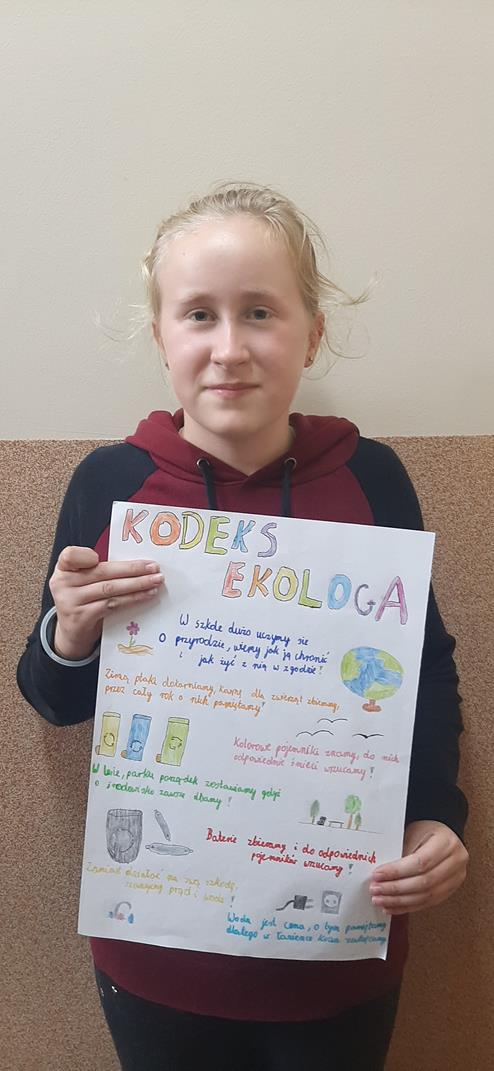 KODEKS
EKOLOGA
W szkole dużo uczymy się
O przyrodzie, wiemy jak ją chronić
i jak żyć z nią w zgodzie!
Zimą ptaki dokarmiamy, karmę dla zwierząt zbieramy,
przez cały rok o nich pamiętamy!
Kolorowe pojemniki znamy, do nich
odpowiednie śmieci wrzucamy!
W lesie, parku porządek zostawiamy gdyż
o środowisko zawsze dbamy!
Baterie zbieramy i do odpowiednich
pojemników wrzucamy!
Zamiast działać na swą szkodę,
oszczędzaj prąd i wodę!
Woda jest cenna, o tym pamiętamy
dlatego w łazience kurek zakręcamy